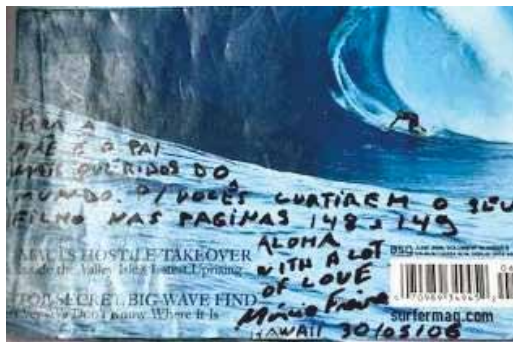 PARA A
MÃE E O PAI
MAIS QUERIDOS DO
MUNDO. P/ VOCÊS CURTIREM O SEU
FILHO NAS PAGINAS 148 e 149
ALOHA
WITH A LOT
OF LOVE
HAWAII 30/05/06
MAUI'S HOSTILE TAKEOVER
Inside the Valley Isle's Latest Uprising
TOP SECRET BIG-WAVE FIND
Don't Know Where It Is
surfermag.com